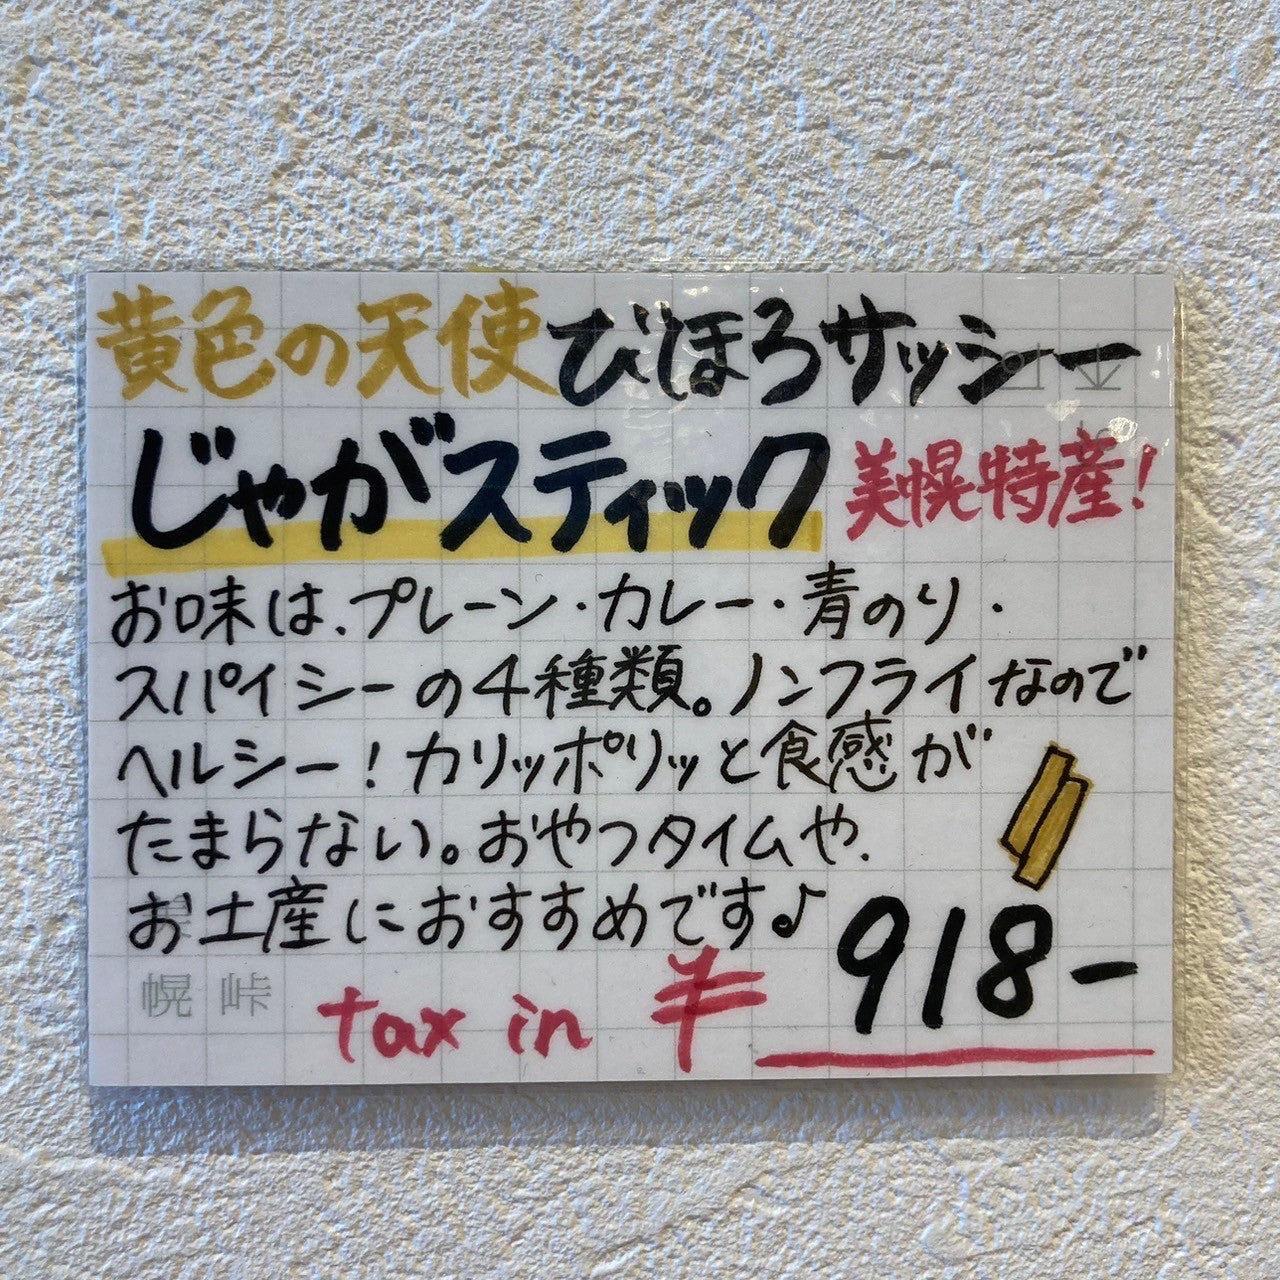 黄色の天使びほろサッシー
じゃがスティック 美幌特産!
お味は、プレーン・カレー・青のり・
スパイシーの4種類。ノンフライなので
ヘルシー!カリッポリッと食感が
たまらない。おやつタイムや、
お土産におすすめです♪
tax in ¥ 918-
幌 峠